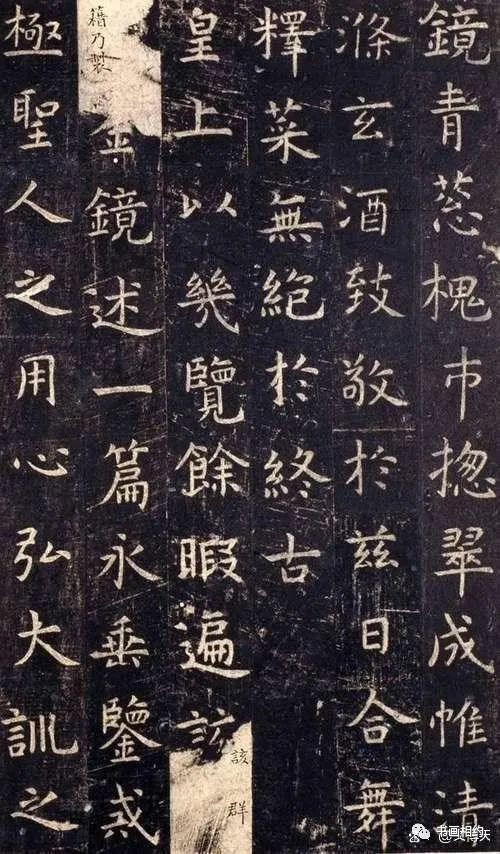 鏡青葱槐市揔翠成帷清
滌玄酒致敬於兹日合舞
釋菜無絶於終古
皇上以幾覽餘暇遍該
該群
籍乃製
金鏡述一篇永垂鑒戒
極聖人之用心弘大訓之
书画相约